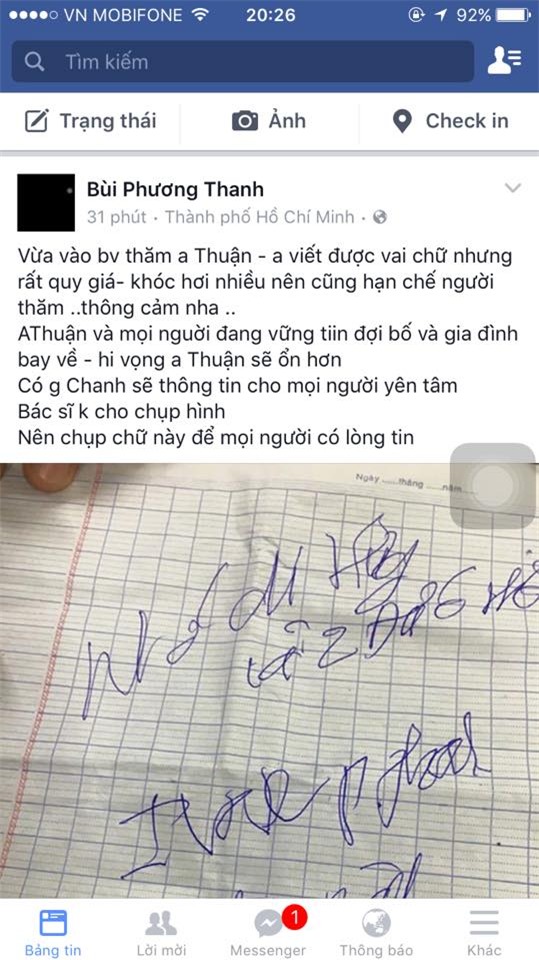 VN MOBIFONE 20:26 92%
Tìm kiếm
Trạng thái Ảnh Check in
Bùi Phương Thanh
31 phút · Thành phố Hồ Chí Minh ·
Vừa vào bv thăm a Thuận - a viết được vai chữ nhưng
rất quy giá- khóc hơi nhiều nên cũng hạn chế người
thăm ..thông cảm nha ..
AThuận và mọi nguời đang vững tiin đợi bố và gia đình
bay về - hi vọng a Thuận sẽ ổn hơn
Có g Chanh sẽ thông tin cho mọi người yên tâm
Bác sĩ k cho chụp hình
Nên chụp chữ này để mọi người có lòng tin
Ngày ......tháng ......năm
1
Bảng tin Lời mời Messenger Thông báo Khác